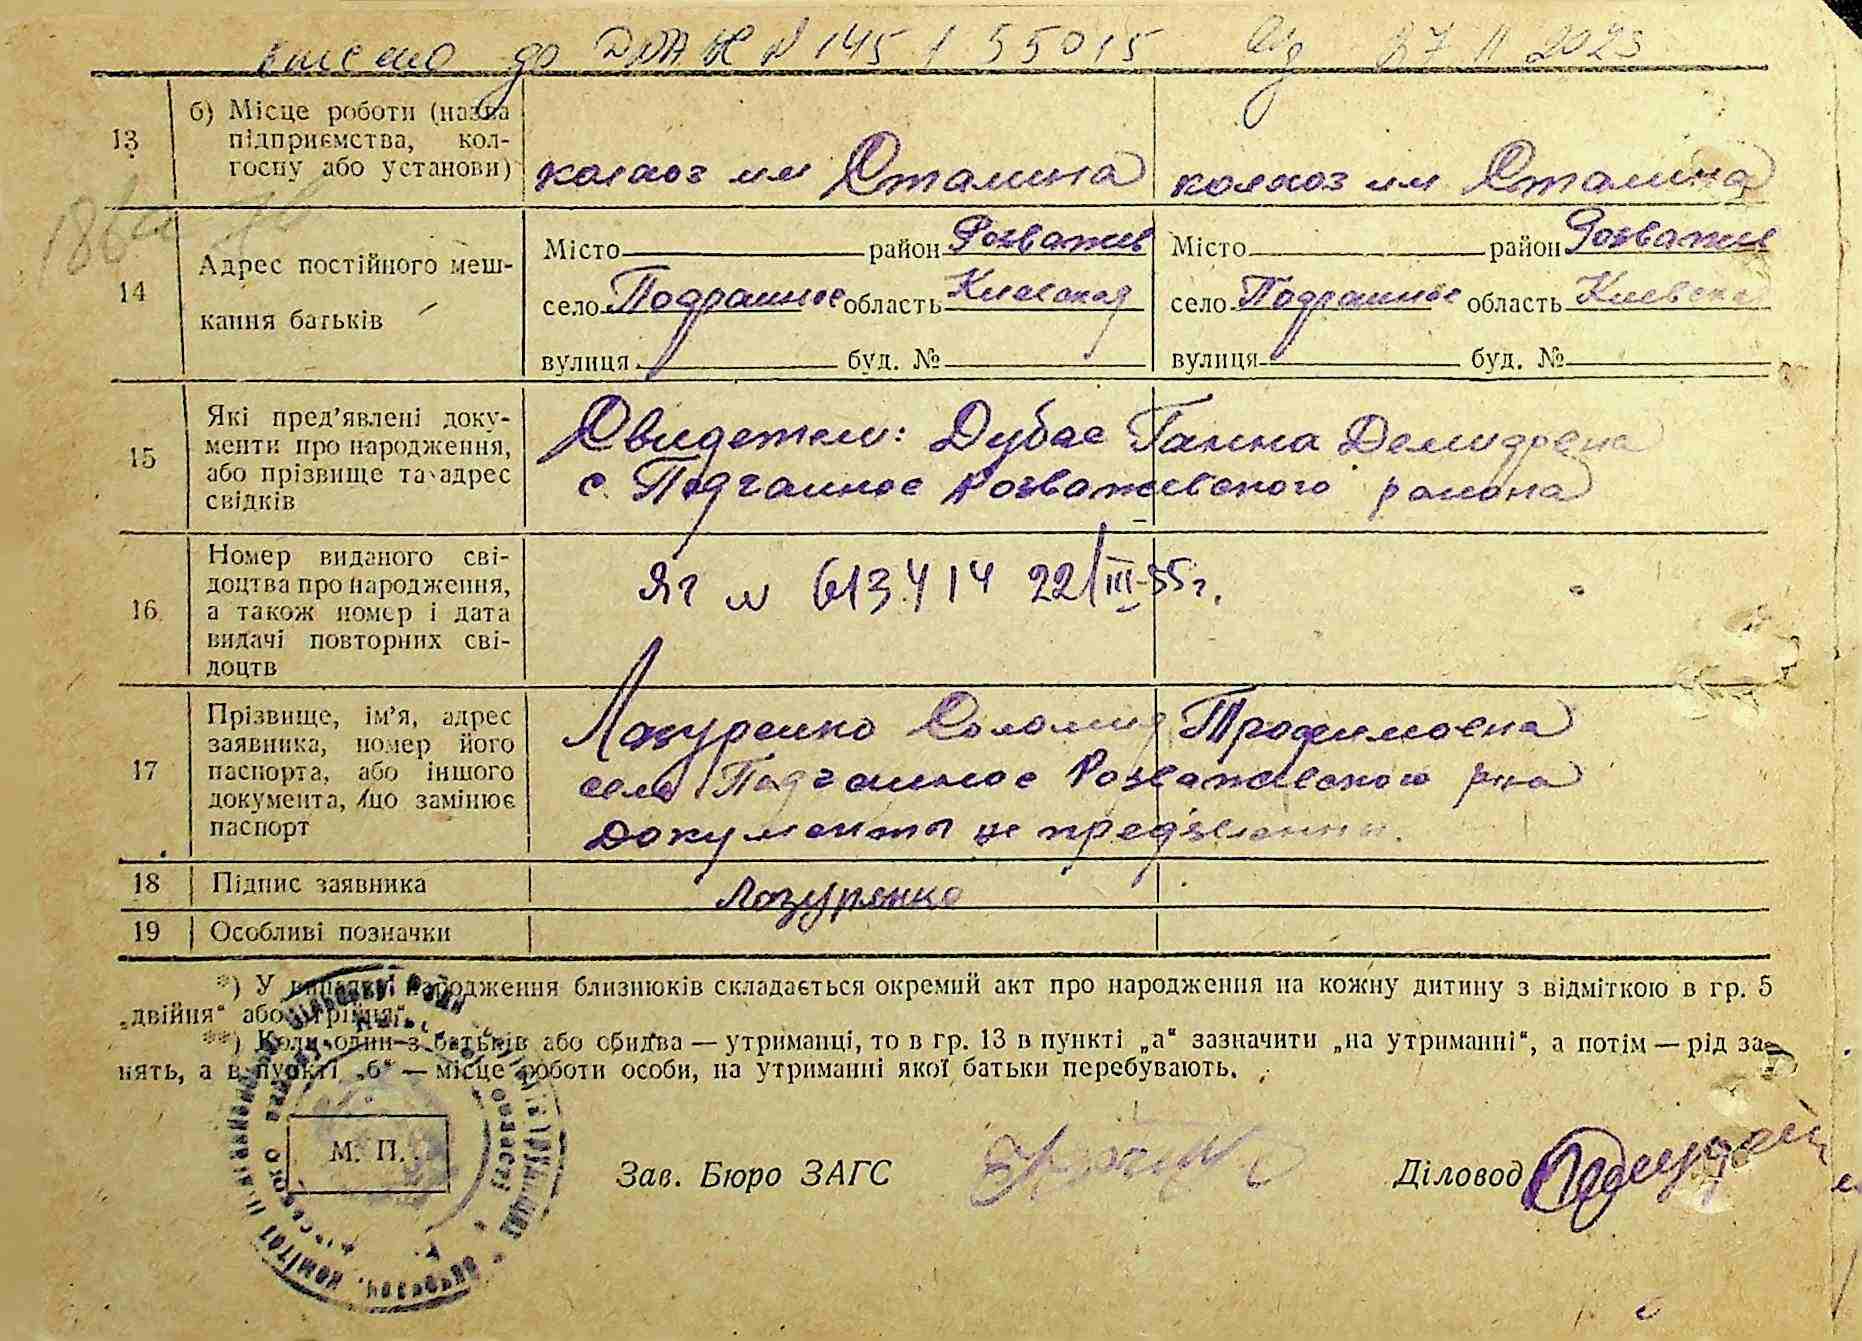 внесено до ДРАЦС № 145 / 55015 від 27 11 2023
13 б) Місце роботи (назва підприємства, кол-
госпу або установи)
колхоз им Сталина
колхоз им Сталина
14 Адрес постійного меш-
кання батьків
Місто район Розважев
село Подгайное область Киевская
вулиця буд. №
Місто район Розважев
село Подгайное область Киевска
вулиця буд. №
15 Які пред’явлені доку-
менти про народження,
або прізвище та адрес
свідків
Свидетели: Дубас Ганна Демидовна
с. Подгайное Розважевского района
16 Номер виданого сві-
доцтва про народження,
а також номер і дата
видачі повторних сві-
доцтв
ЯГ № 613414 22/III-55г.
17 Прізвище, ім’я, адрес
заявника, номер його
паспорта, або іншого
документа, що замінює
паспорт
Лазуренко Соломия Трофимовна
село Подгайное Розважевского р-на
Документы не предъявлены.
18 Підпис заявника
Лазуренко
19 Особливі позначки
*) У випадку народження близнюків складається окремий акт про народження на кожну дитину з відміткою в гр. 5
„двійня“ або „трійня“.
**) Коли один з батьків або обидва — утриманці, то в гр. 13 в пункті „а“ зазначити „на утриманні“, а потім — рід за-
нять, а в пункті „б“ — місце роботи особи, на утриманні якої батьки перебувають.
М. П.
Зав. Бюро ЗАГС
Діловод